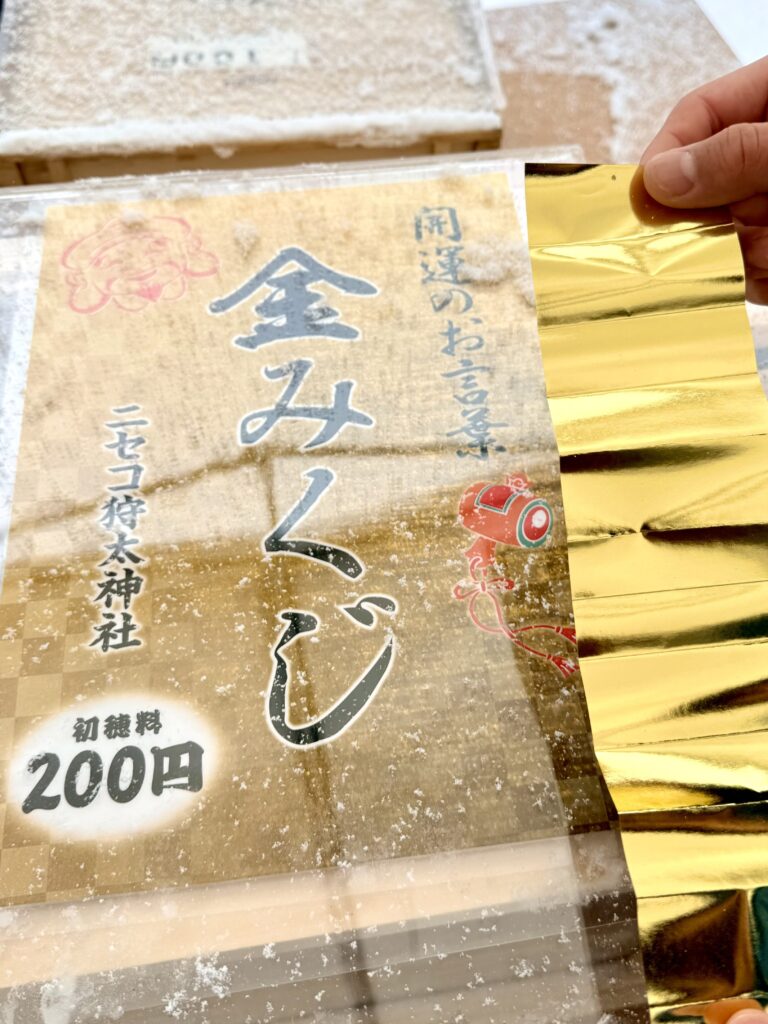 開運のお言葉
金みくじ
ニセコ狩太神社
初穂料
200円